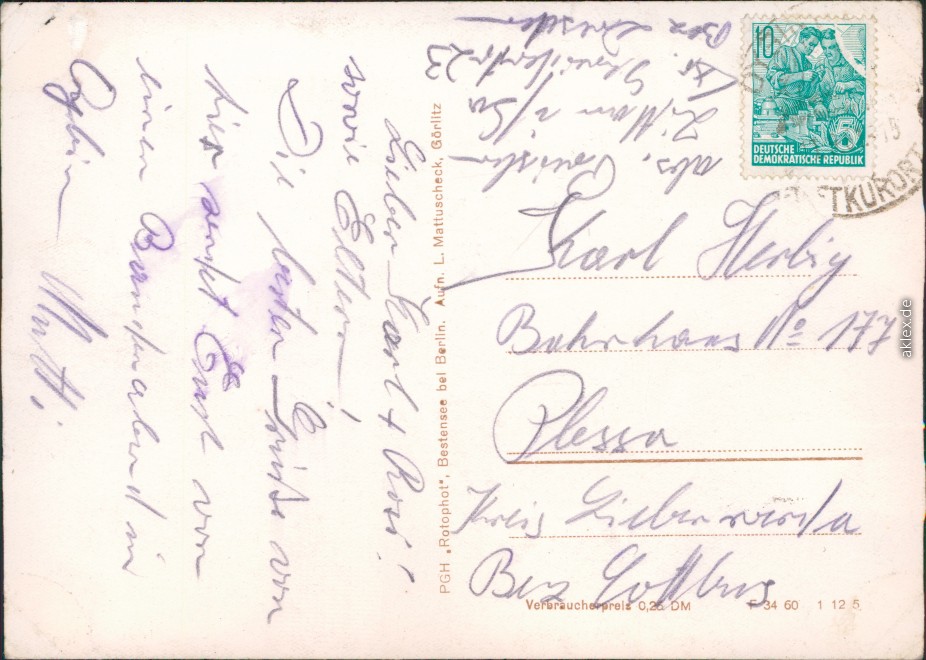 Lieber Karl + Rosi!
sowie Eltern,
Die besten Grüße von
hier sendet Euch von
einen
in
Oybin Mutti.
PGH „Rotophot“, Bestensee bei Berlin. Aufn. L. Mattuscheck, Görlitz
abs.
Zittau i/Sa
23
Bez Dresden
10
5
DEUTSCHE
DEMOKRATISCHE REPUBLIK
LUFTKURORT
Karl Herbig
No 177
Plessa
Kreis Liebenwerda
Bez Cottbus
Verbraucherpreis 0,25 DM
F 34 60 1 12 5
aklex.de